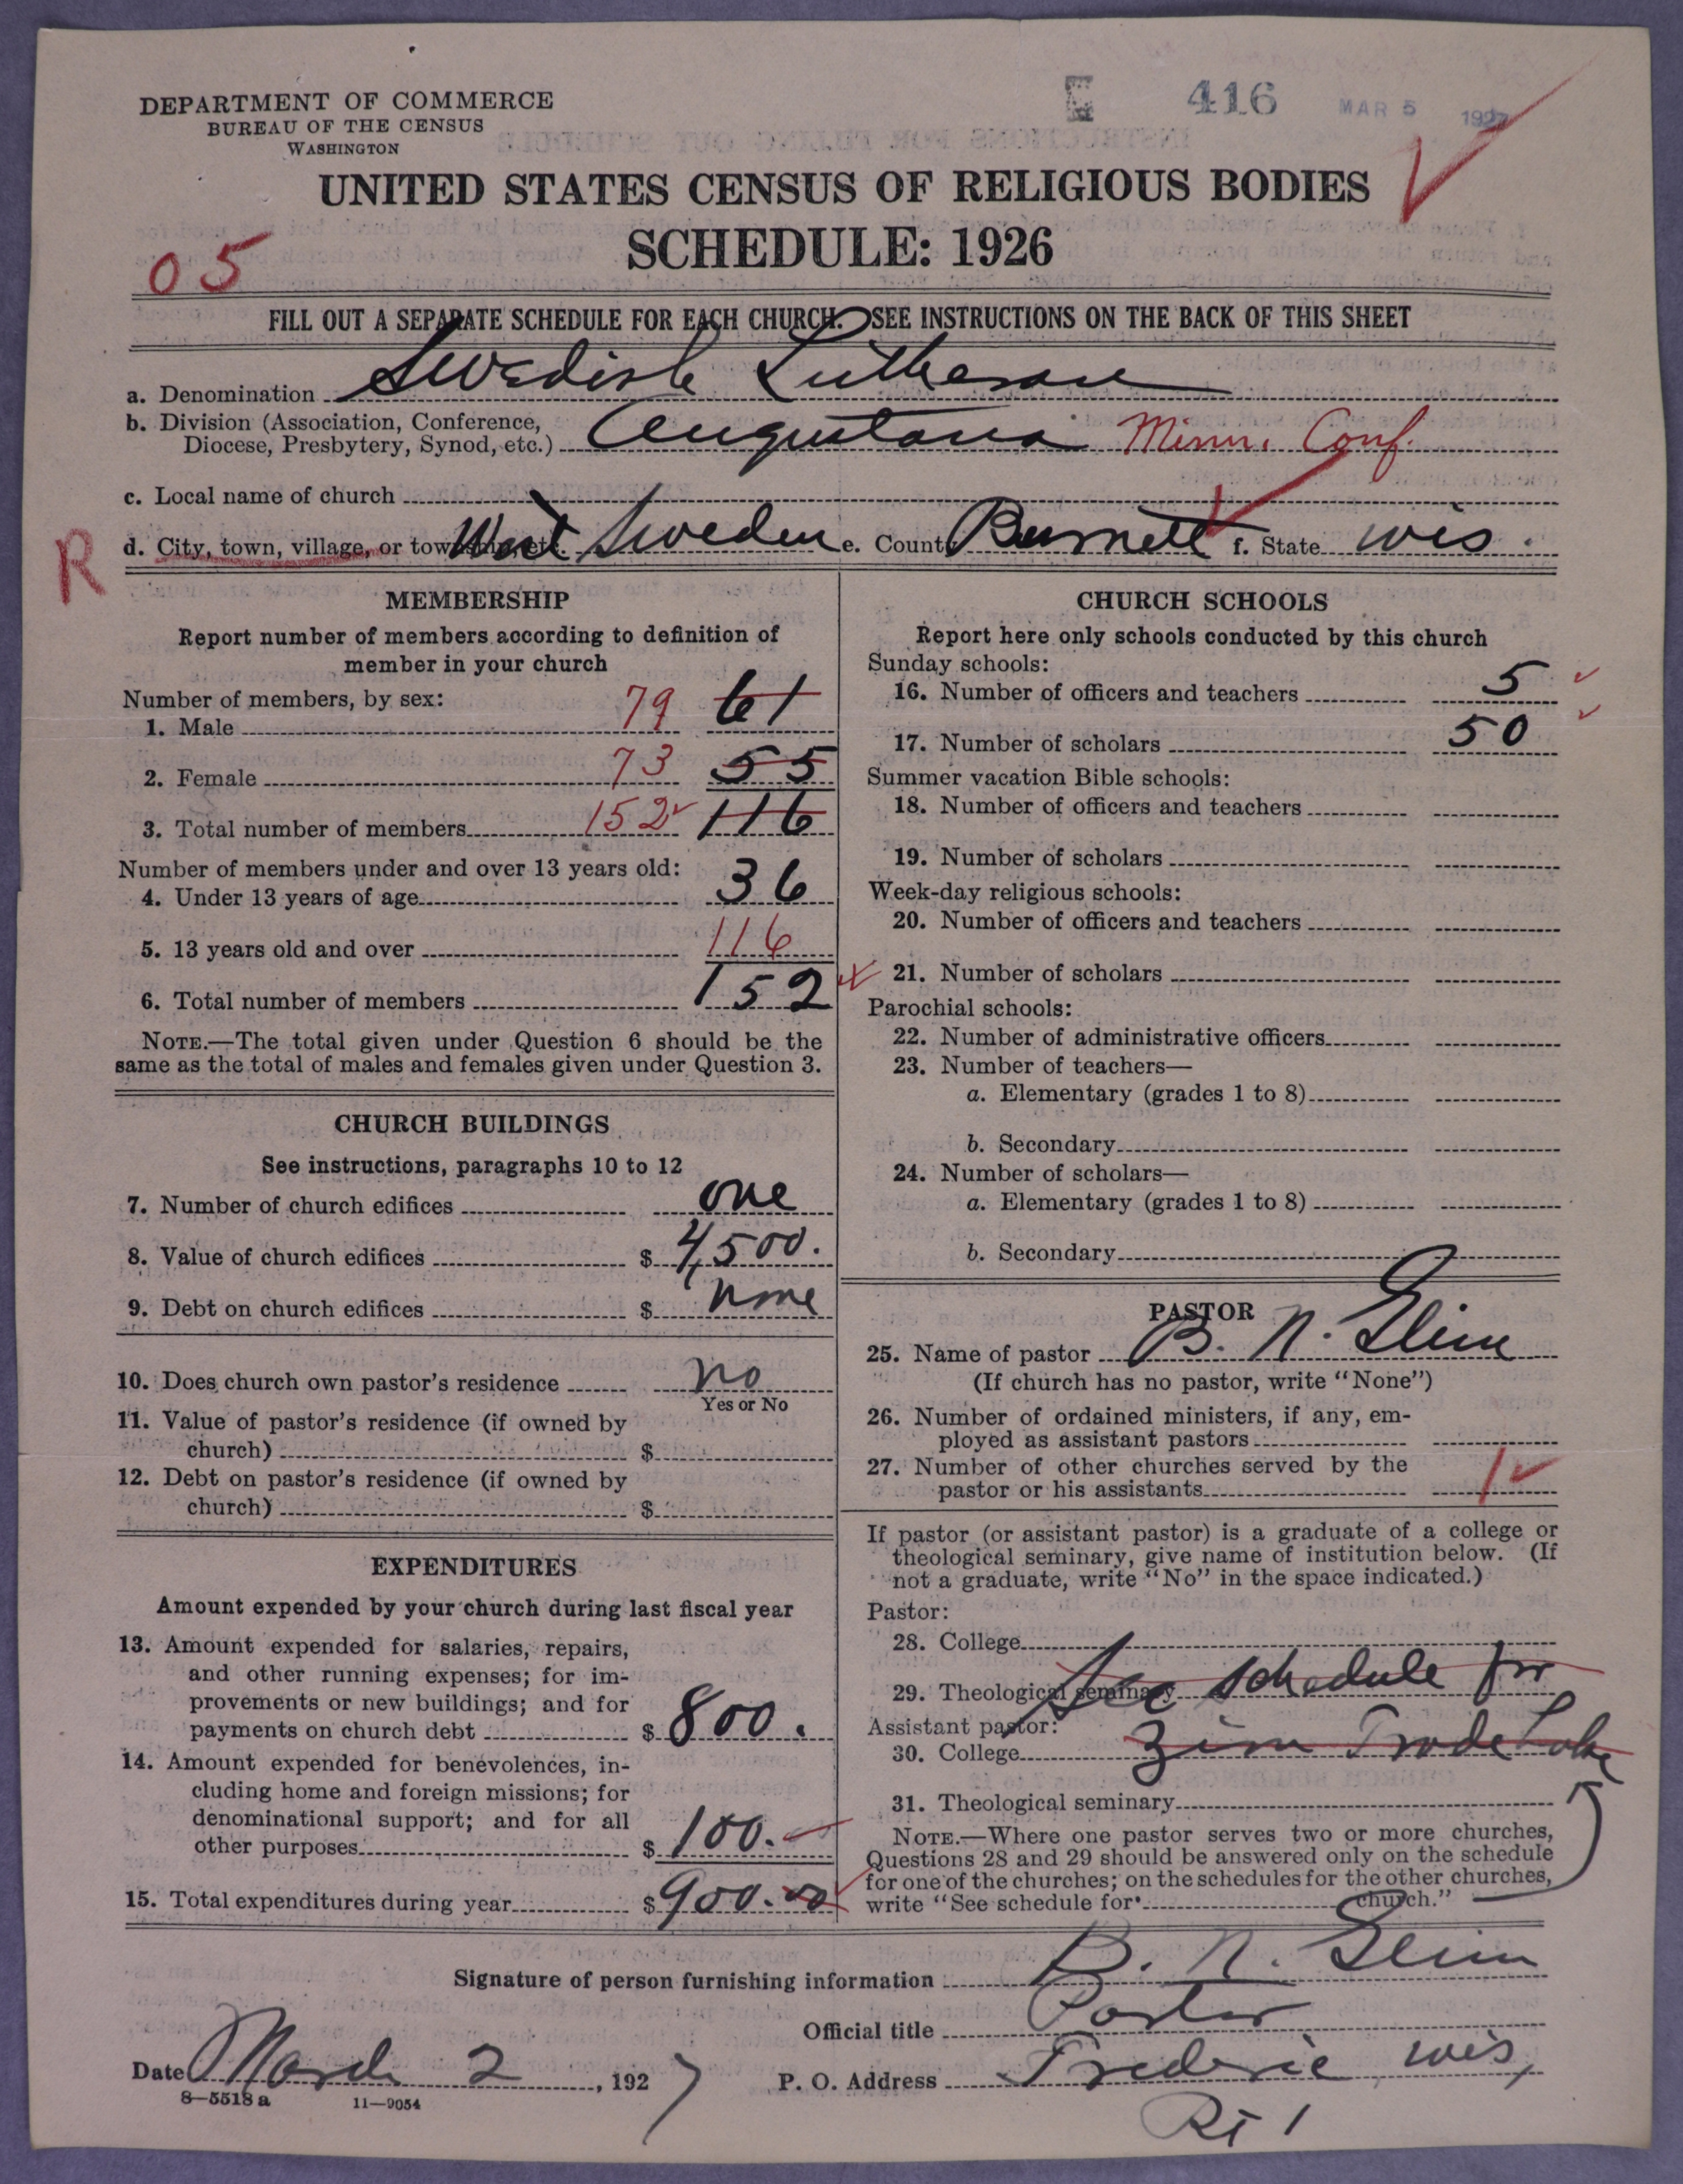 DEPARTMENT OF COMMERCE
BUREAU OF THE CENSUS
WASHINGTON
416 MAR 5 1927
UNITED STATES CENSUS OF RELIGIOUS BODIES
SCHEDULE: 1926
05
FILL OUT A SEPARATE SCHEDULE FOR EACH CHURCH. SEE INSTRUCTIONS ON THE BACK OF THIS SHEET
a. Denomination Swedish Lutheran
b. Division (Association, Conference,
Diocese, Presbytery, Synod, etc.) Augustana Minn. Conf.
c. Local name of church
R
d. City, town, village, or township, etc. West Sweden e. County Burnett f. State Wis.
MEMBERSHIP
Report number of members according to definition of
member in your church
Number of members, by sex:
1. Male 79 61
2. Female 73 55
3. Total number of members 152 116
Number of members under and over 13 years old:
4. Under 13 years of age 36
5. 13 years old and over 116
6. Total number of members 152
NOTE.—The total given under Question 6 should be the
same as the total of males and females given under Question 3.
CHURCH BUILDINGS
See instructions, paragraphs 10 to 12
7. Number of church edifices one
8. Value of church edifices $ 4,500.
9. Debt on church edifices $ none
10. Does church own pastor's residence no
Yes or No
11. Value of pastor's residence (if owned by
church) $
12. Debt on pastor's residence (if owned by
church) $
EXPENDITURES
Amount expended by your church during last fiscal year
13. Amount expended for salaries, repairs,
and other running expenses; for im-
provements or new buildings; and for
payments on church debt $ 800.
14. Amount expended for benevolences, in-
cluding home and foreign missions; for
denominational support; and for all
other purposes $ 100.
15. Total expenditures during year $ 900.00
CHURCH SCHOOLS
Report here only schools conducted by this church
Sunday schools:
16. Number of officers and teachers 5
17. Number of scholars 50
Summer vacation Bible schools:
18. Number of officers and teachers
19. Number of scholars
Week-day religious schools:
20. Number of officers and teachers
21. Number of scholars
Parochial schools:
22. Number of administrative officers
23. Number of teachers—
a. Elementary (grades 1 to 8)
b. Secondary
24. Number of scholars—
a. Elementary (grades 1 to 8)
b. Secondary
PASTOR
25. Name of pastor B. N. Glim
(If church has no pastor, write "None")
26. Number of ordained ministers, if any, em-
ployed as assistant pastors
27. Number of other churches served by the
pastor or his assistants 1
If pastor (or assistant pastor) is a graduate of a college or
theological seminary, give name of institution below. (If
not a graduate, write "No" in the space indicated.)
Pastor:
28. College
29. Theological seminary See schedule for
Assistant pastor:
30. College Zion Trade Lake
31. Theological seminary
NOTE.—Where one pastor serves two or more churches,
Questions 28 and 29 should be answered only on the schedule
for one of the churches; on the schedules for the other churches,
write "See schedule for church."
Signature of person furnishing information B. N. Glim
Official title Pastor
Date March 2, 1927 P. O. Address Frederic Wis,
8—5518 a 11—9054
Rt 1